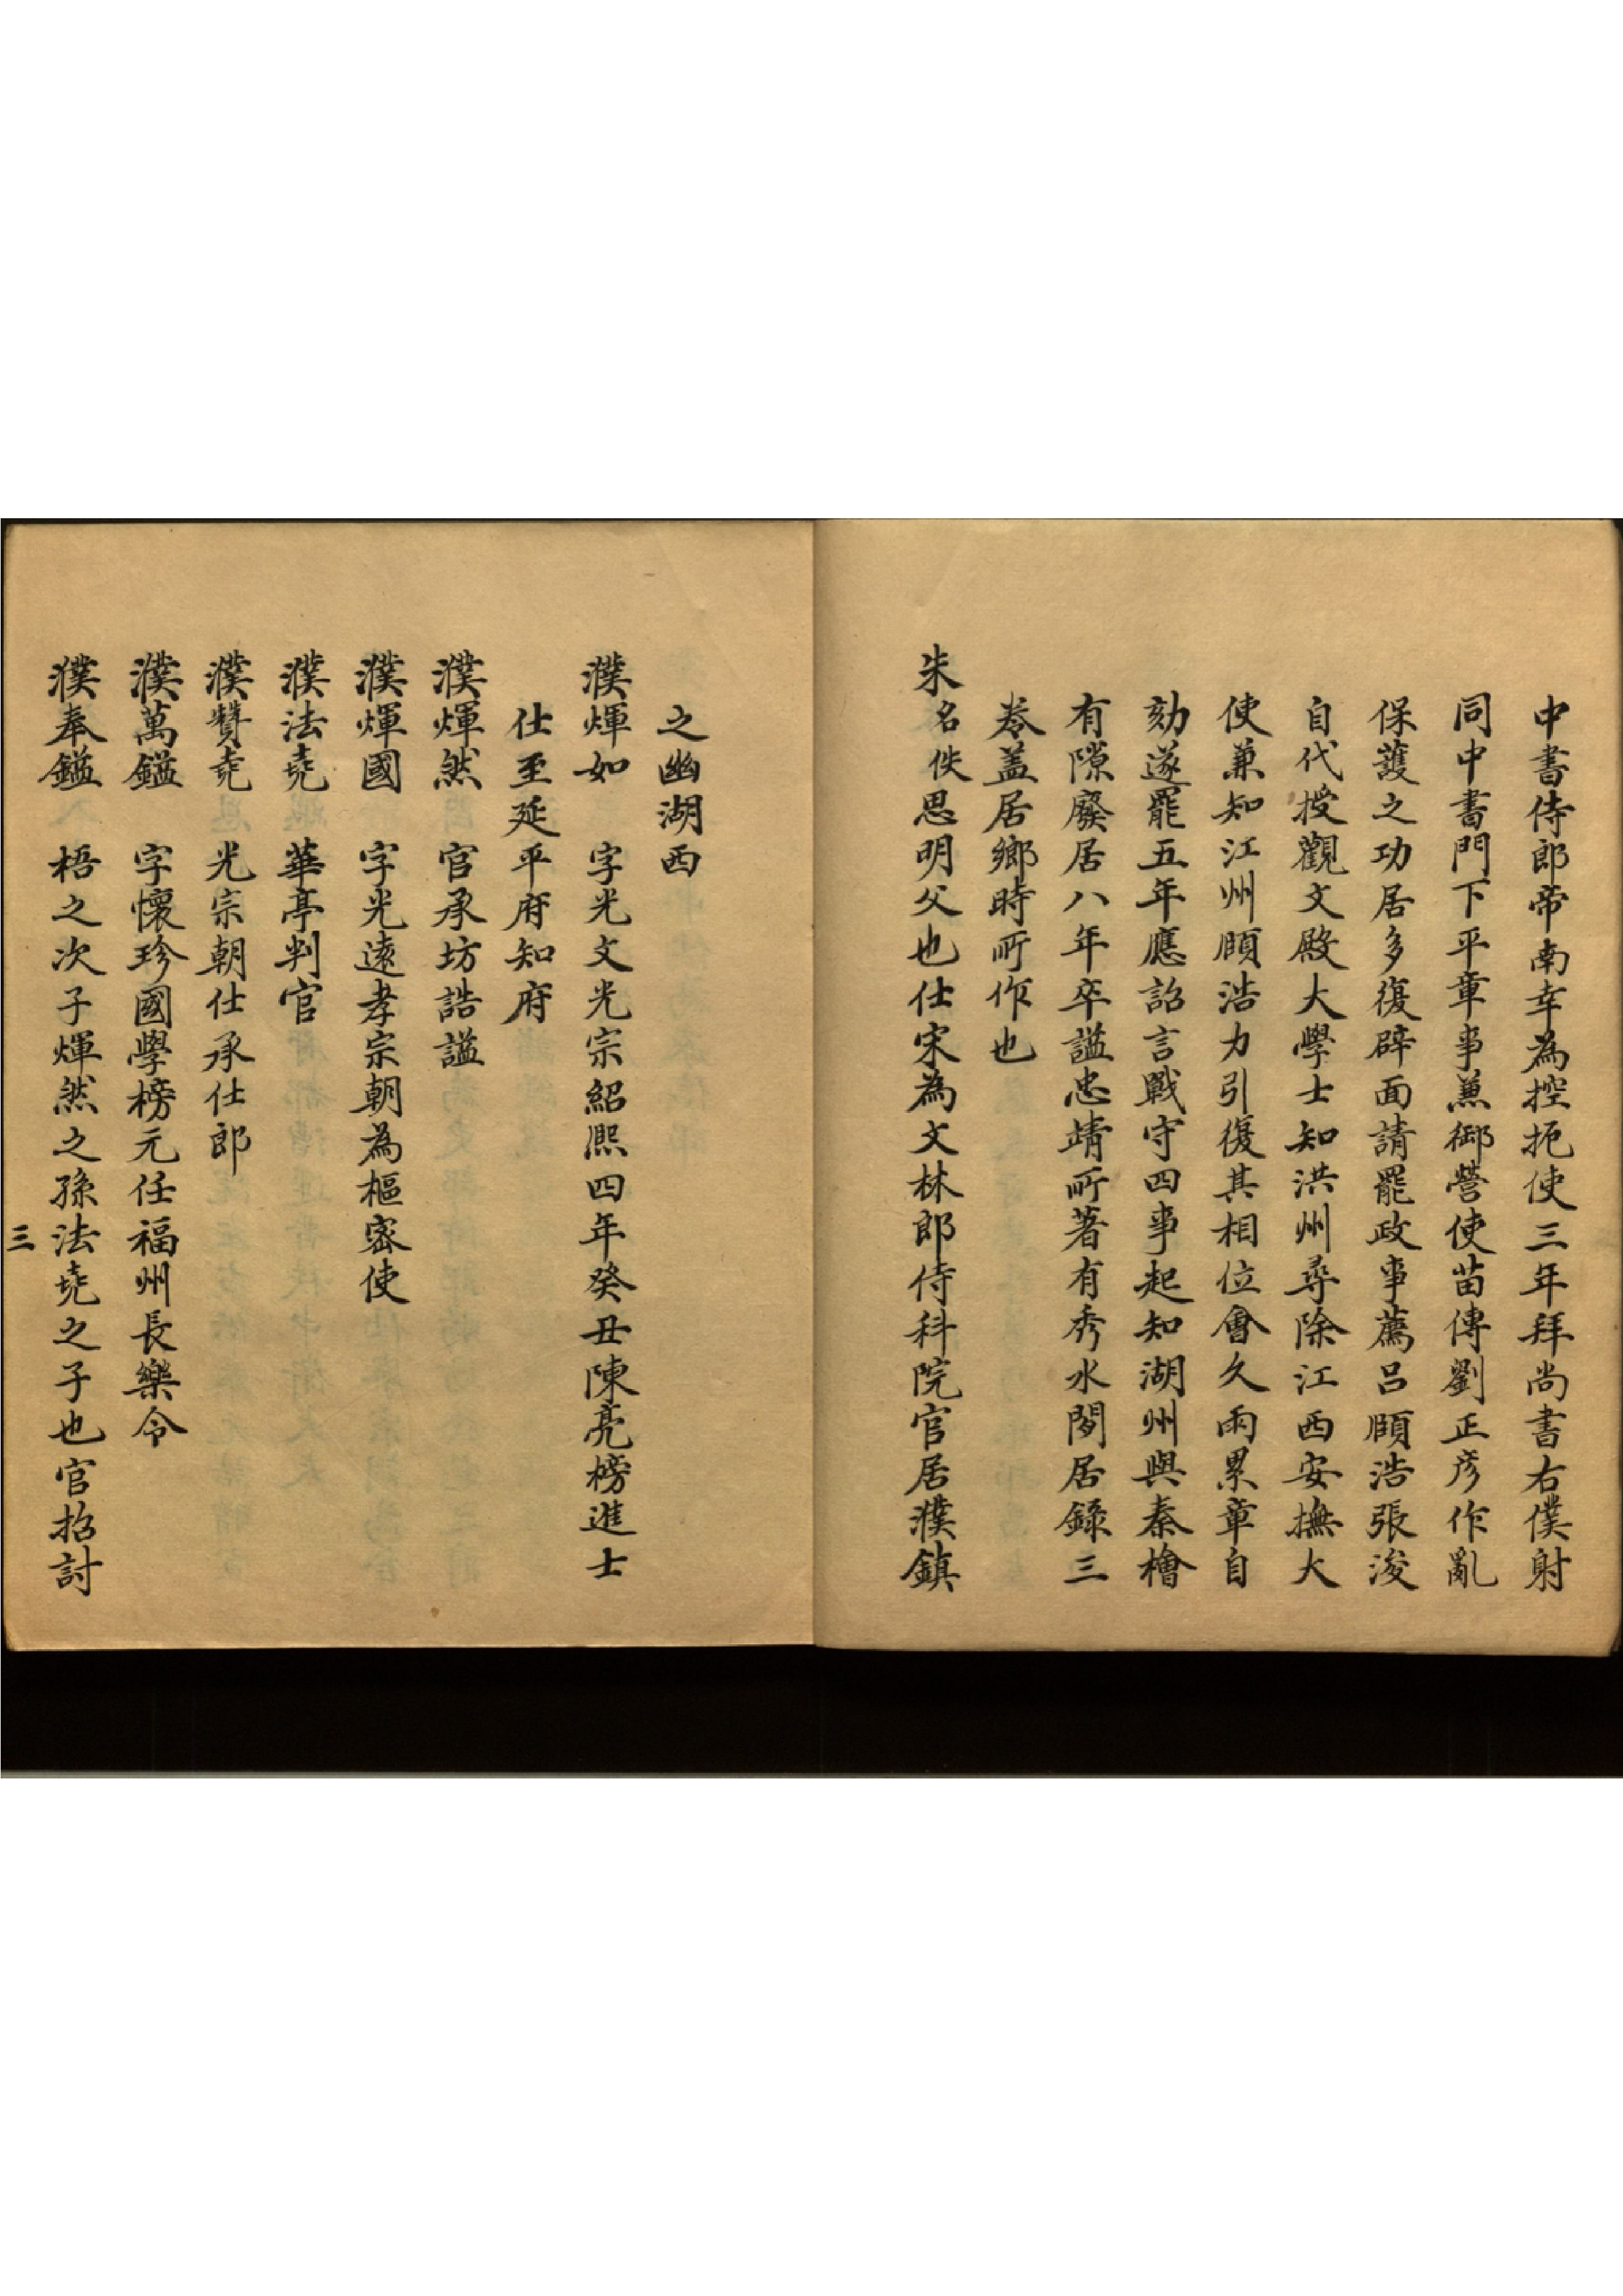 中書侍郎帝南幸為控扼使三年拜尚書右僕射
同中書門下平章事兼御營使苗傅劉正彥作亂
保護之功居多復辟面請罷政事薦呂頤浩張浚
自代授觀文殿大學士知洪州尋除江西安撫大
使兼知江州頤浩力引復其相位會久雨累章自
劾遂罷五年應詔言戰守四事起知湖州與秦檜
有隙廢居八年卒謚忠靖所著有秀水閒居錄三
卷盖居鄉時所作也
朱名佚思明父也仕宋為文林郎侍科院官居濮鎮
之幽湖西
濮煇如 字光文光宗紹熙四年癸丑陳亮榜進士
仕至延平府知府
濮煇然 官承坊誥謚
濮煇國 字光遠孝宗朝為樞密使
濮法堯 華亭判官
濮贊堯 光宗朝仕承仕郎
濮萬鎰 字懷珍國學榜元任福州長樂令
濮奉鎰 梧之次子煇然之孫法堯之子也官招討
三